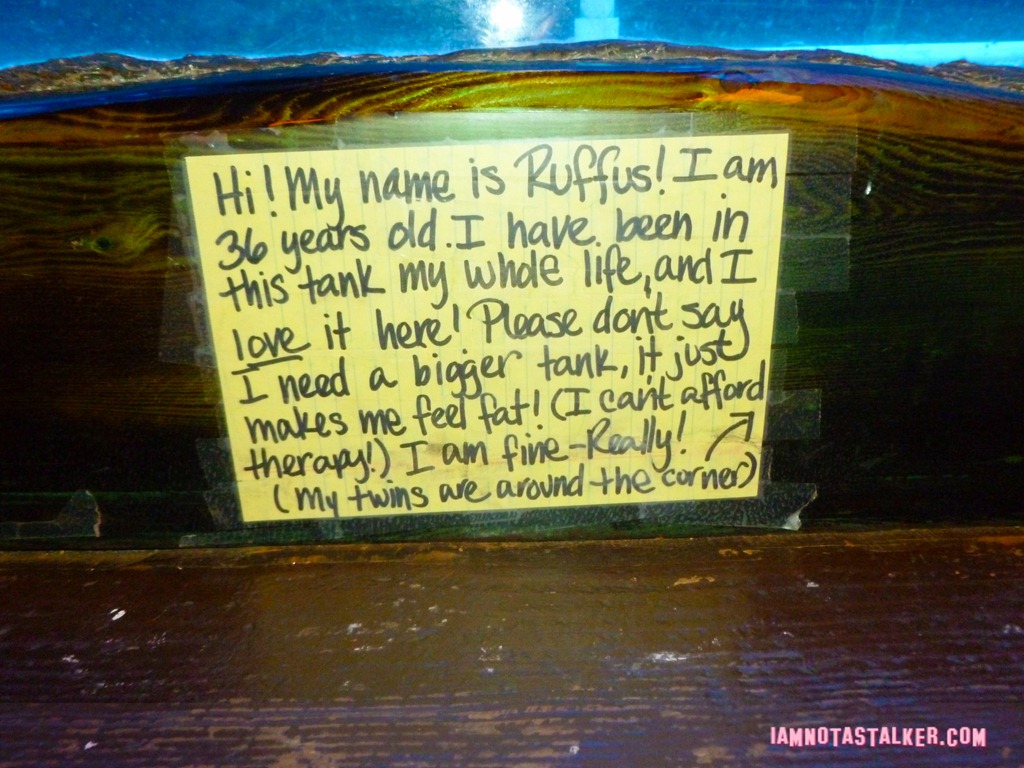 Hi! My name is Ruffus! I am
36 years old. I have been in
this tank my whole life, and I
love it here! Please don't say
I need a bigger tank, it just
makes me feel fat! (I can't afford
therapy!) I am fine-Really!
(My twins are around the corner)
IAMNOTASTALKER.COM